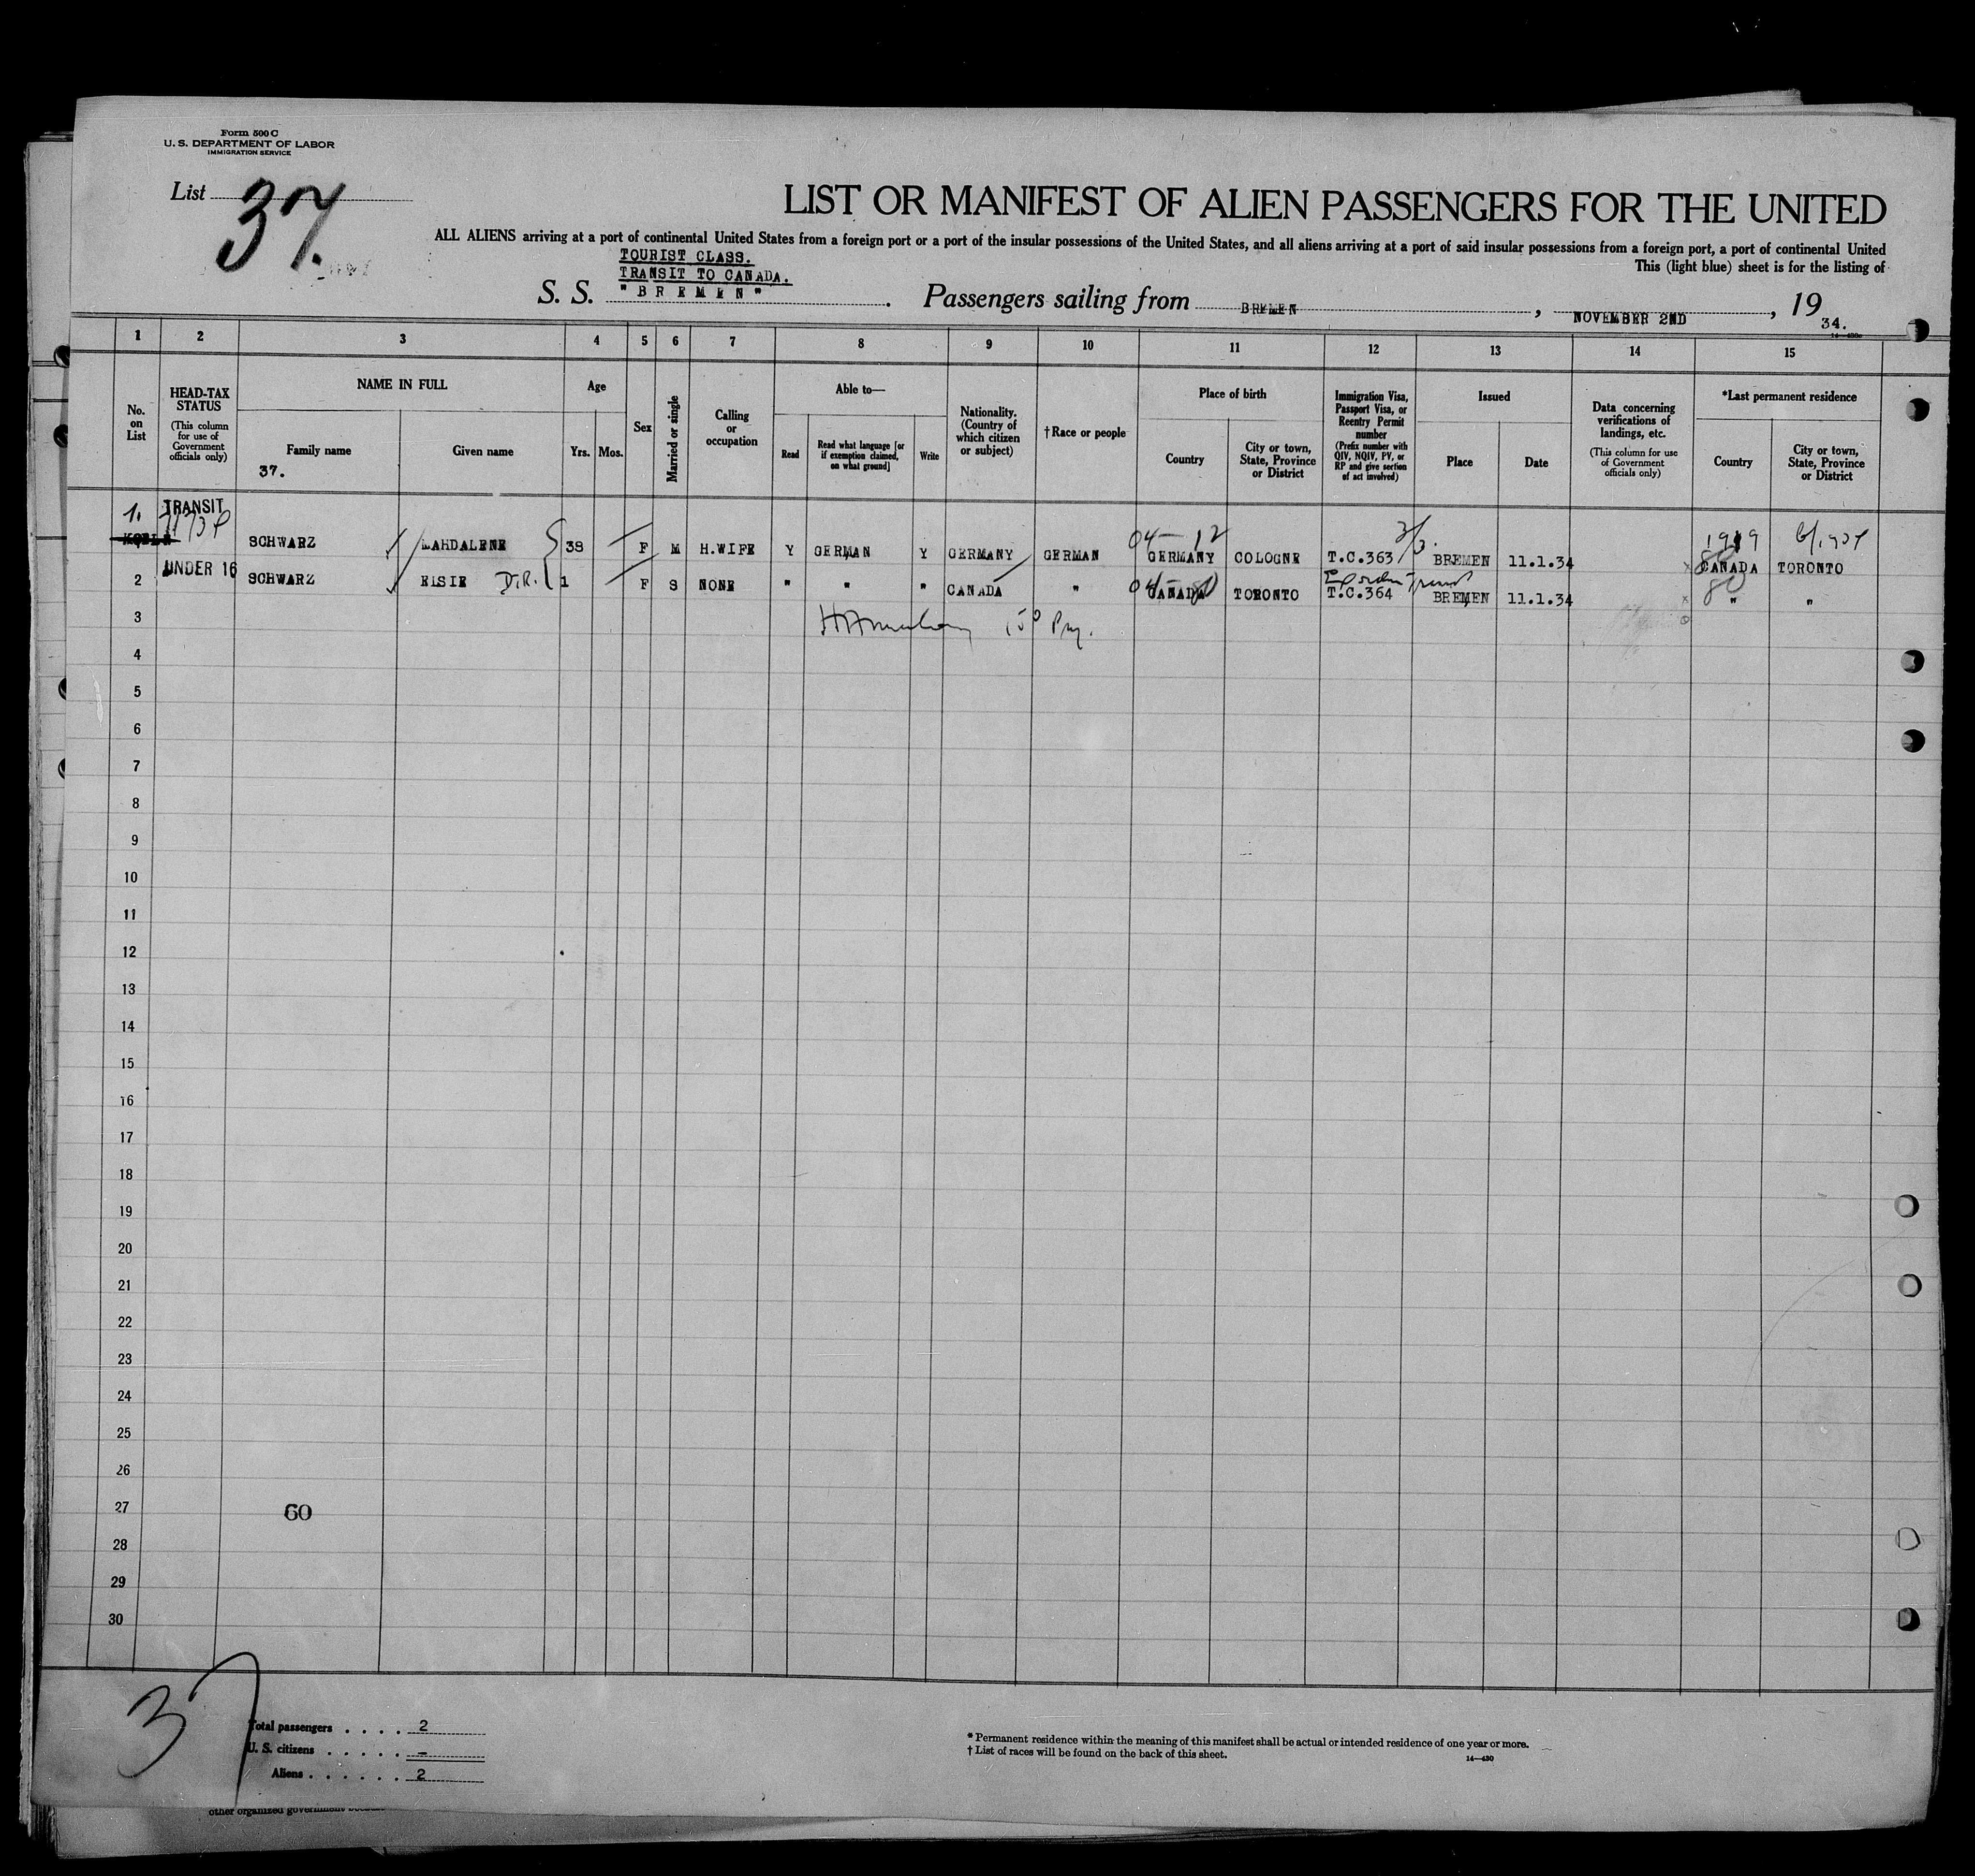 Form 500 C
U. S. DEPARTMENT OF LABOR
IMMIGRATION SERVICE
List 37.
LIST OR MANIFEST OF ALIEN PASSENGERS FOR THE UNITED
ALL ALIENS arriving at a port of continental United States from a foreign port or a port of the insular possessions of the United States, and all aliens arriving at a port of said insular possessions from a foreign port, a port of continental United
This (light blue) sheet is for the listing of
TOURIST CLASS.
TRANSIT TO CANADA.
S. S. "BREMEN". Passengers sailing from BREMEN, NOVEMBER 2ND, 1934.
14-430c
1 2 3 4 5 6 7 8 9 10 11 12 13 14 15
No. on List
HEAD-TAX STATUS (This column for use of Government officials only)
NAME IN FULL
Family name
37.
Given name
Age
Yrs. Mos.
Sex
Married or single
Calling or occupation
Able to—
Read
Read what language [or if exemption claimed, on what ground]
Write
Nationality. (Country of which citizen or subject)
†Race or people
Place of birth
Country
City or town, State, Province or District
Immigration Visa, Passport Visa, or Reentry Permit number (Prefix number with QIV, NQIV, PV, or RP and give section of act involved)
Issued
Place
Date
Data concerning verifications of landings, etc. (This column for use of Government officials only)
*Last permanent residence
Country
City or town, State, Province or District
04-12 2/3. 1919
1. TRANSIT SCHWARZ MAHDALENE 38 F M H.WIFE Y GERMAN Y GERMANY GERMAN GERMANY COLOGNE T.C.363 BREMEN 11.1.34 CANADA TORONTO
2 UNDER 16 SCHWARZ ELSIE D.R. 1 F S NONE " " " CANADA " CANADA TORONTO T.C.364 BREMEN 11.1.34 " "
3
4
5
6
7
8
9
10
11
12
13
14
15
16
17
18
19
20
21
22
23
24
25
26
27 60
28
29
30
37
Total passengers . . . . 2
U. S. citizens . . . . . -
Aliens . . . . . . 2
* Permanent residence within the meaning of this manifest shall be actual or intended residence of one year or more.
† List of races will be found on the back of this sheet.
14-430
other organized government